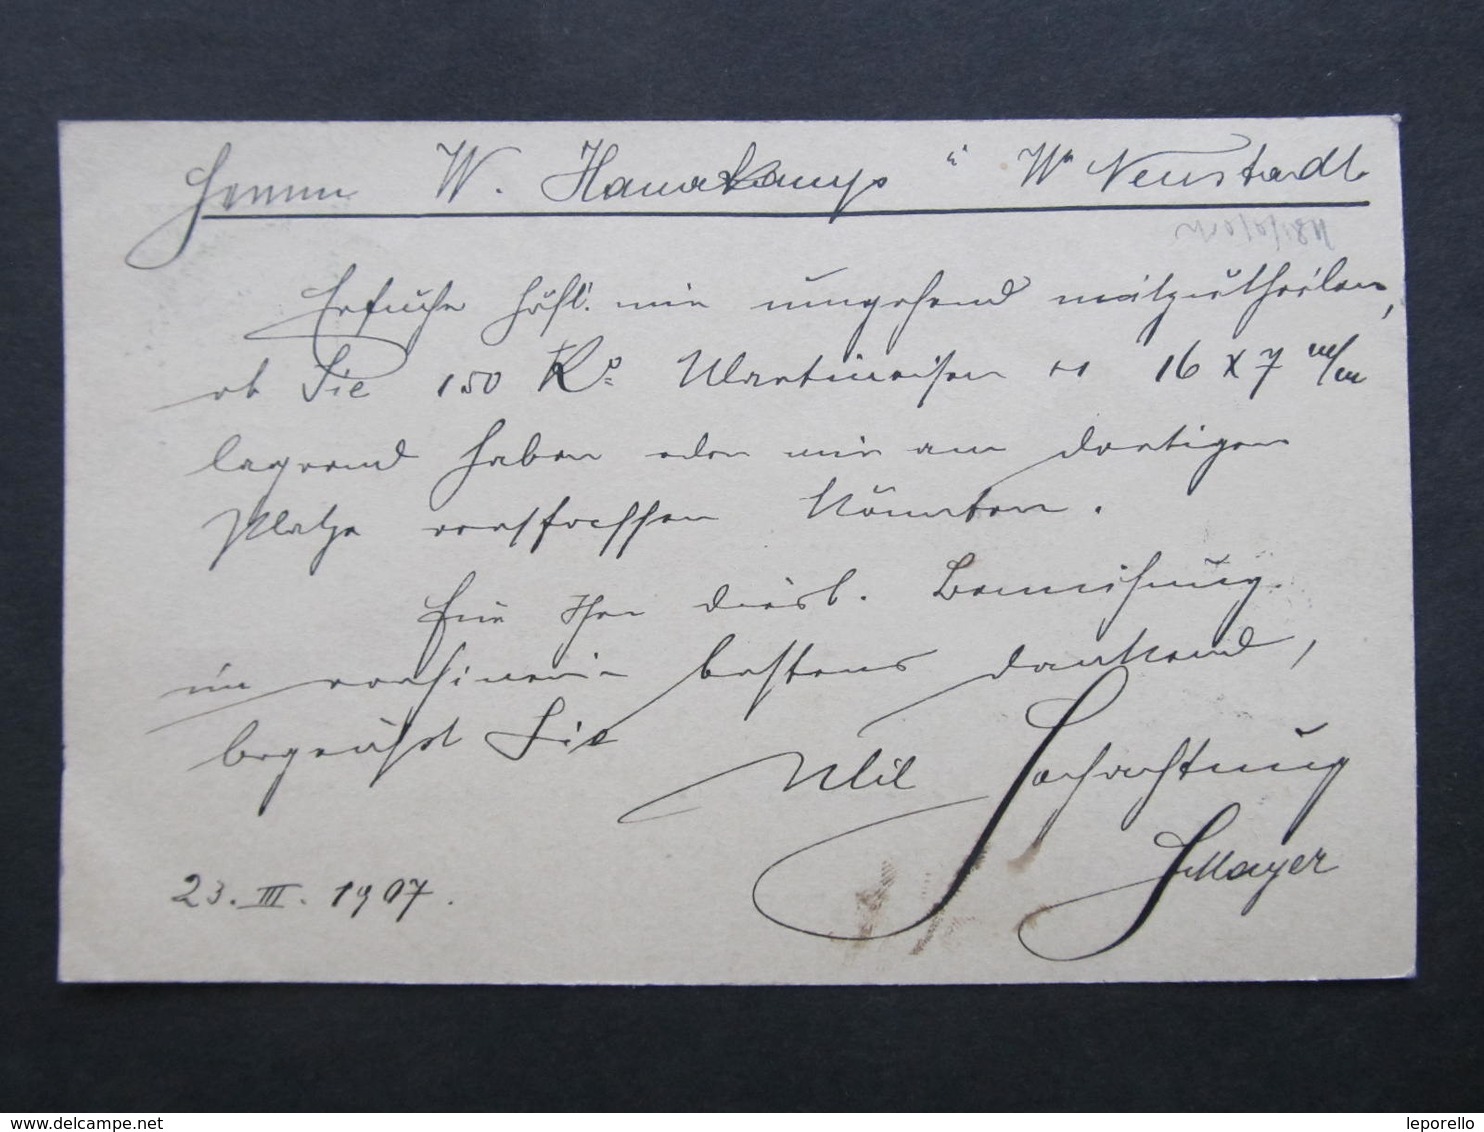 Herrn W. Hanakamp in Wr Neustadt
Ersuche höfl. mir umgehend mitzutheilen,
ob Sie 150 Ko Martineisen 16 X 7 m/m
lagernd haben oder mir am dortigen
Platze verschaffen könnten.
Für Ihre diesb. Bemühung
im vorhinein bestens dankend,
begrüßt Sie
Mit Hochachtung
Mayer
23. III. 1907.
delcampe.net
leporello